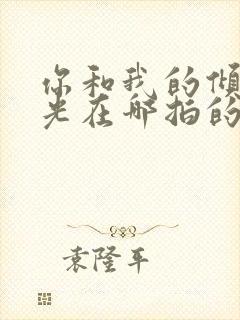 你和我的倾
光在哪拍的
袁隆平